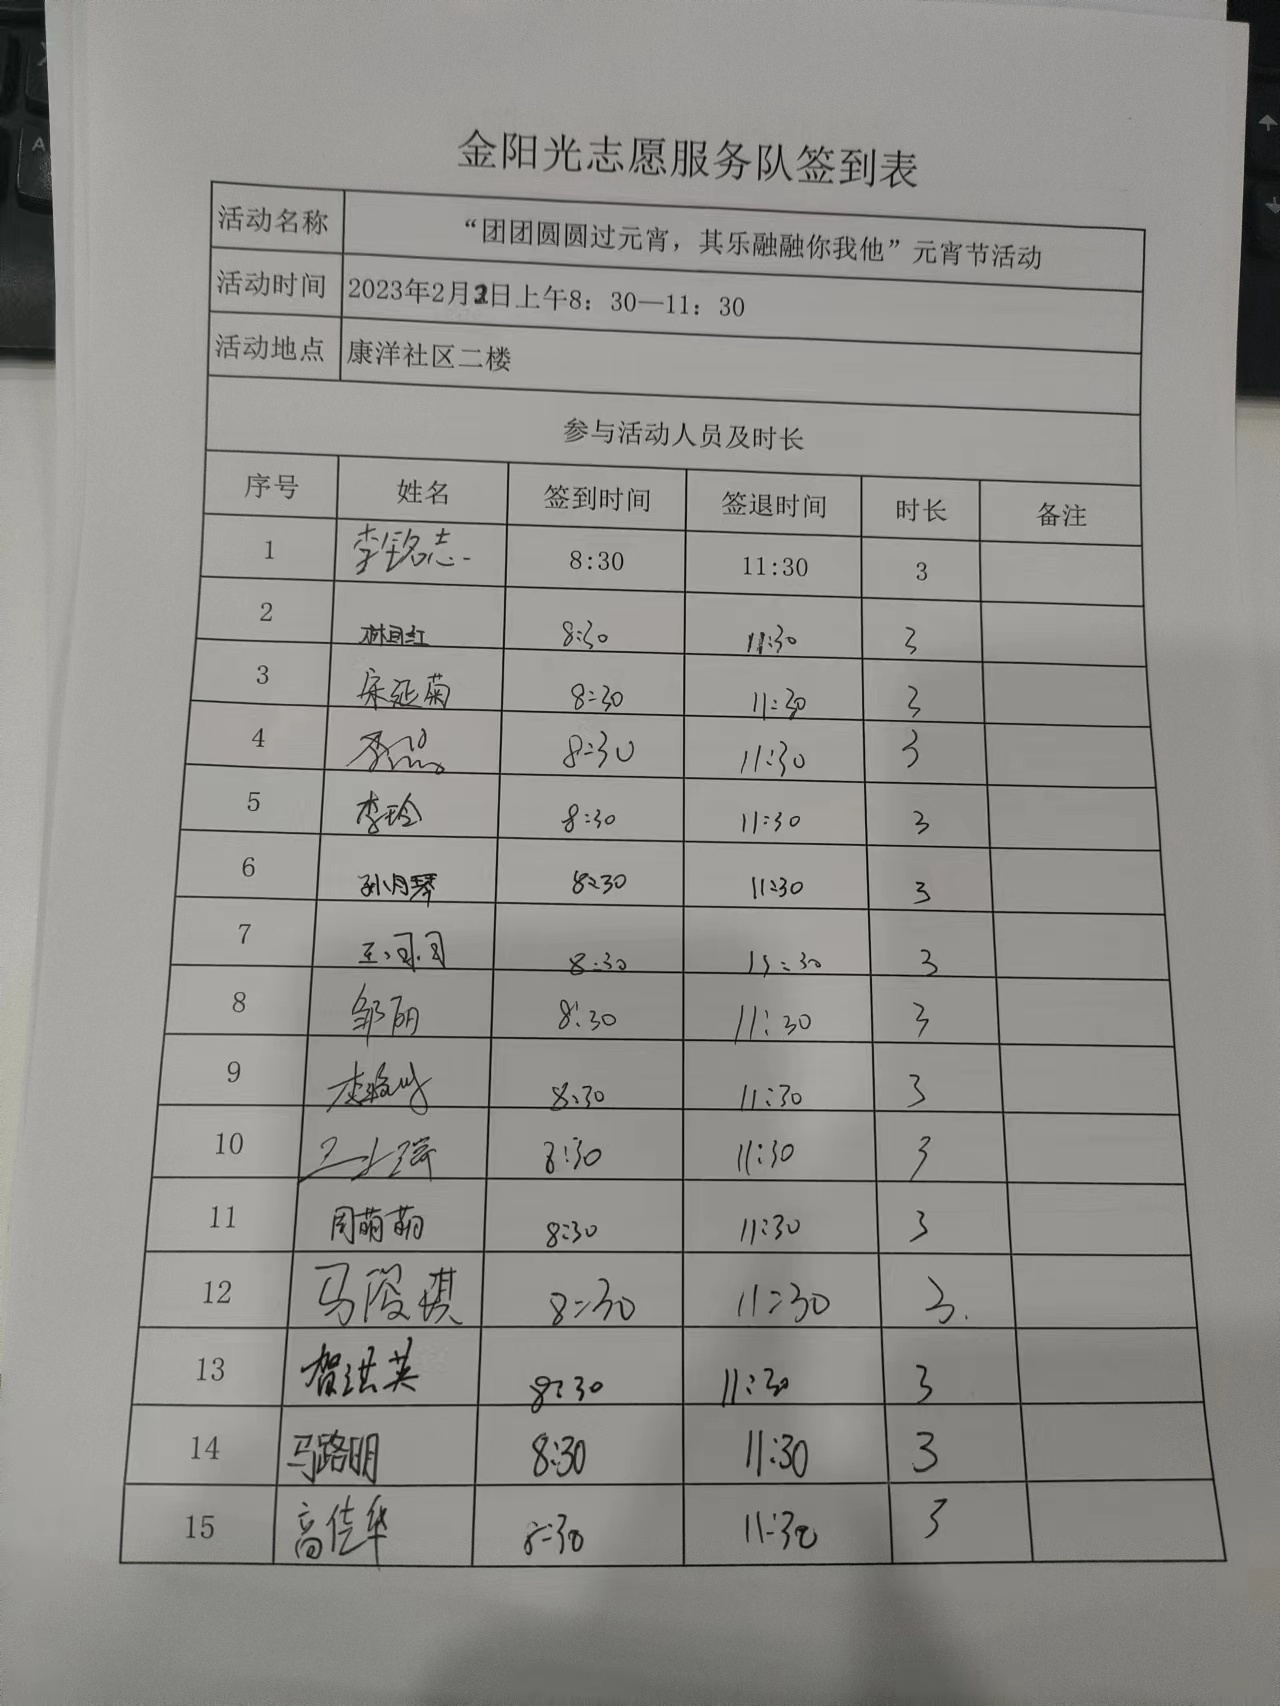 金阳光志愿服务队签到表
活动名称 “团团圆圆过元宵，其乐融融你我他”元宵节活动
活动时间 2023年2月 日上午8：30—11：30
活动地点 康洋社区二楼
参与活动人员及时长
序号 姓名 签到时间 签退时间 时长 备注
1 李铭志 8:30 11:30 3
2 8:30 11:30 3
3 宋延菊 8:30 11:30 3
4 8:30 11:30 3
5 李玲 8:30 11:30 3
6 孙月琴 8:30 11:30 3
7 8:30 3
8 邹丽 8:30 11:30 3
9 8:30 11:30 3
10 8:30 11:30 3
11 周萌萌 8:30 11:30 3
12 马俊琪 8:30 11:30 3.
13 贺洪英 8:30 11:30 3
14 马路明 8:30 11:30 3
15 高佳华 8:30 11:30 3